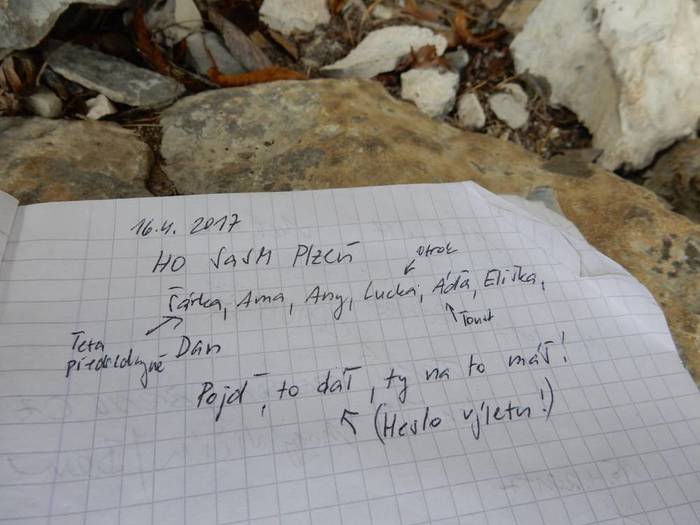 16.4. 2017
HO SASM Plzeň
otrok
Šárka, Ama, Any, Lucka, Áďa, Eliška,
Teta
předsedkyně
Dan
Pojď, to dáš, ty na to máš!
(Heslo výletu!)